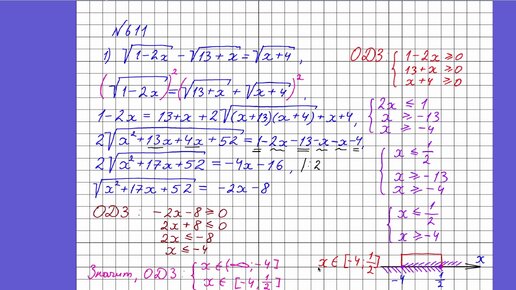 №611
1) √(1-2x) - √(13+x) = √(x+4) ,
(√(1-2x))² = (√(13+x) + √(x+4))² ,
1-2x = 13+x + 2√((x+13)(x+4)) + x+4 ,
2√(x²+13x+4x+52) = 1-2x-13-x-x-4
2√(x²+17x+52) = -4x-16 , |:2
√(x²+17x+52) = -2x-8
ОДЗ: -2x-8 ≥ 0
2x+8 ≤ 0
2x ≤ -8
x ≤ -4
Значит, ОДЗ: { x ∈ (-∞; -4]
x ∈ [-4; 1/2]
ОДЗ { 1-2x ≥ 0
13+x ≥ 0
x+4 ≥ 0
{ 2x ≤ 1
x ≥ -13
x ≥ -4
{ x ≤ 1/2
x ≥ -13
x ≥ -4
{ x ≤ 1/2
x ≥ -4
x ∈ [-4; 1/2]
-4 1/2 x